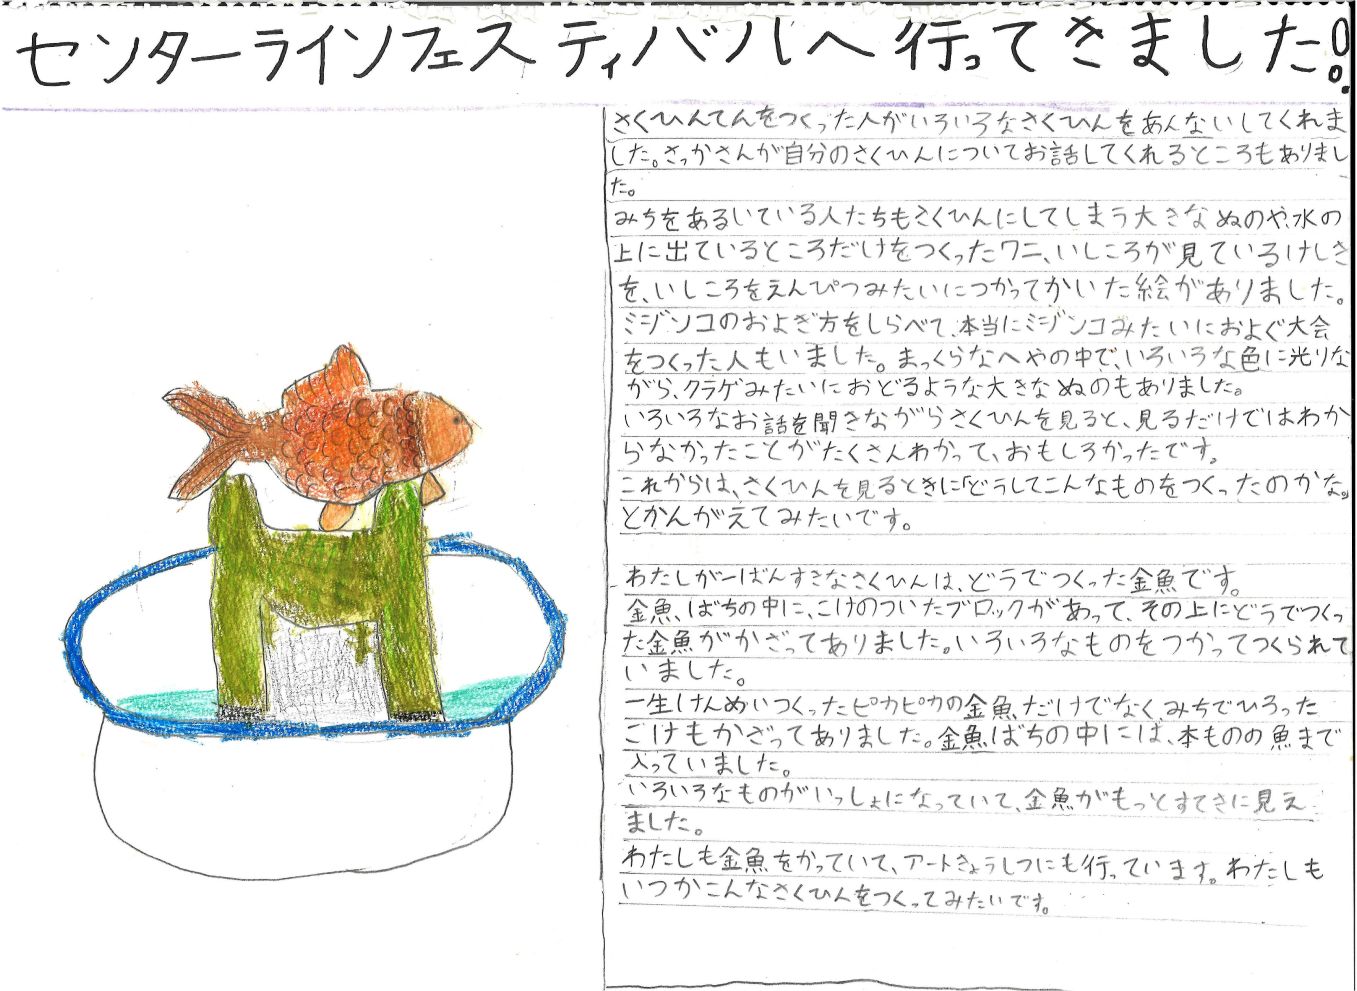 センターラインフェスティバルへ行ってきました!!
さくひんてんをつくった人がいろいろなさくひんをあんないしてくれま
した。さっかさんが自分のさくひんについてお話してくれるところもありまし
た。
みちをあるいている人たちもさくひんにしてしまう大きなぬのや、水の
上に出ているところだけをつくったワニ、いしころが見ているけしき
を、いしころをえんぴつみたいにつかってかいた絵がありました。
ミジンコのおよぎ方をしらべて、本当にミジンコみたいにおよぐ大会
をつくった人もいました。まっくらなへやの中で、いろいろな色に光りな
がら、クラゲみたいにおどるような大きなぬのもありました。
いろいろなお話を聞きながらさくひんを見ると、見るだけではわか
らなかったことがたくさんわかって、おもしろかったです。
これからは、さくひんを見るときに「どうしてこんなものをつくったのかな。」
とかんがえてみたいです。
わたしが一ばんすきなさくひんは、どうでつくった金魚です。
金魚ばちの中に、こけのついたブロックがあって、その上にどうでつくっ
た金魚がかざってありました。いろいろなものをつかってつくられて
いました。
一生けんめいつくったピカピカの金魚だけでなく、みちでひろった
こけもかざってありました。金魚ばちの中には、本ものの魚まで
入っていました。
いろいろなものがいっしょになっていて、金魚がもっとすてきに見え
ました。
わたしも金魚をかっていて、アートきょうしつにも行っています。わたしも
いつかこんなさくひんをつくってみたいです。